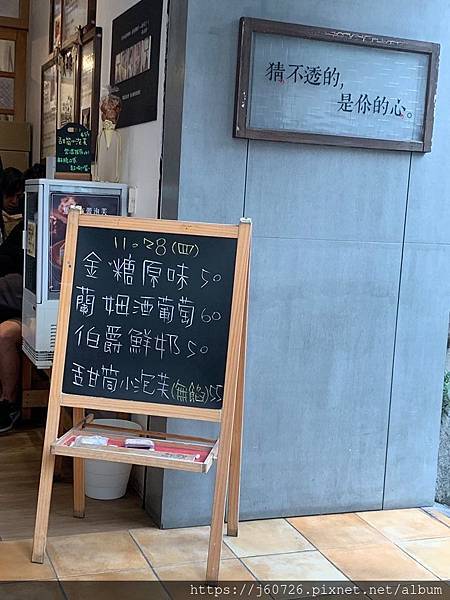 猜不透的，
是你的心。
11.28(四)
金糖原味 50
蘭姆酒葡萄 60
伯爵鮮奶 50
甜筒小泡芙(無餡)55
https://j60726.pixnet.net/album